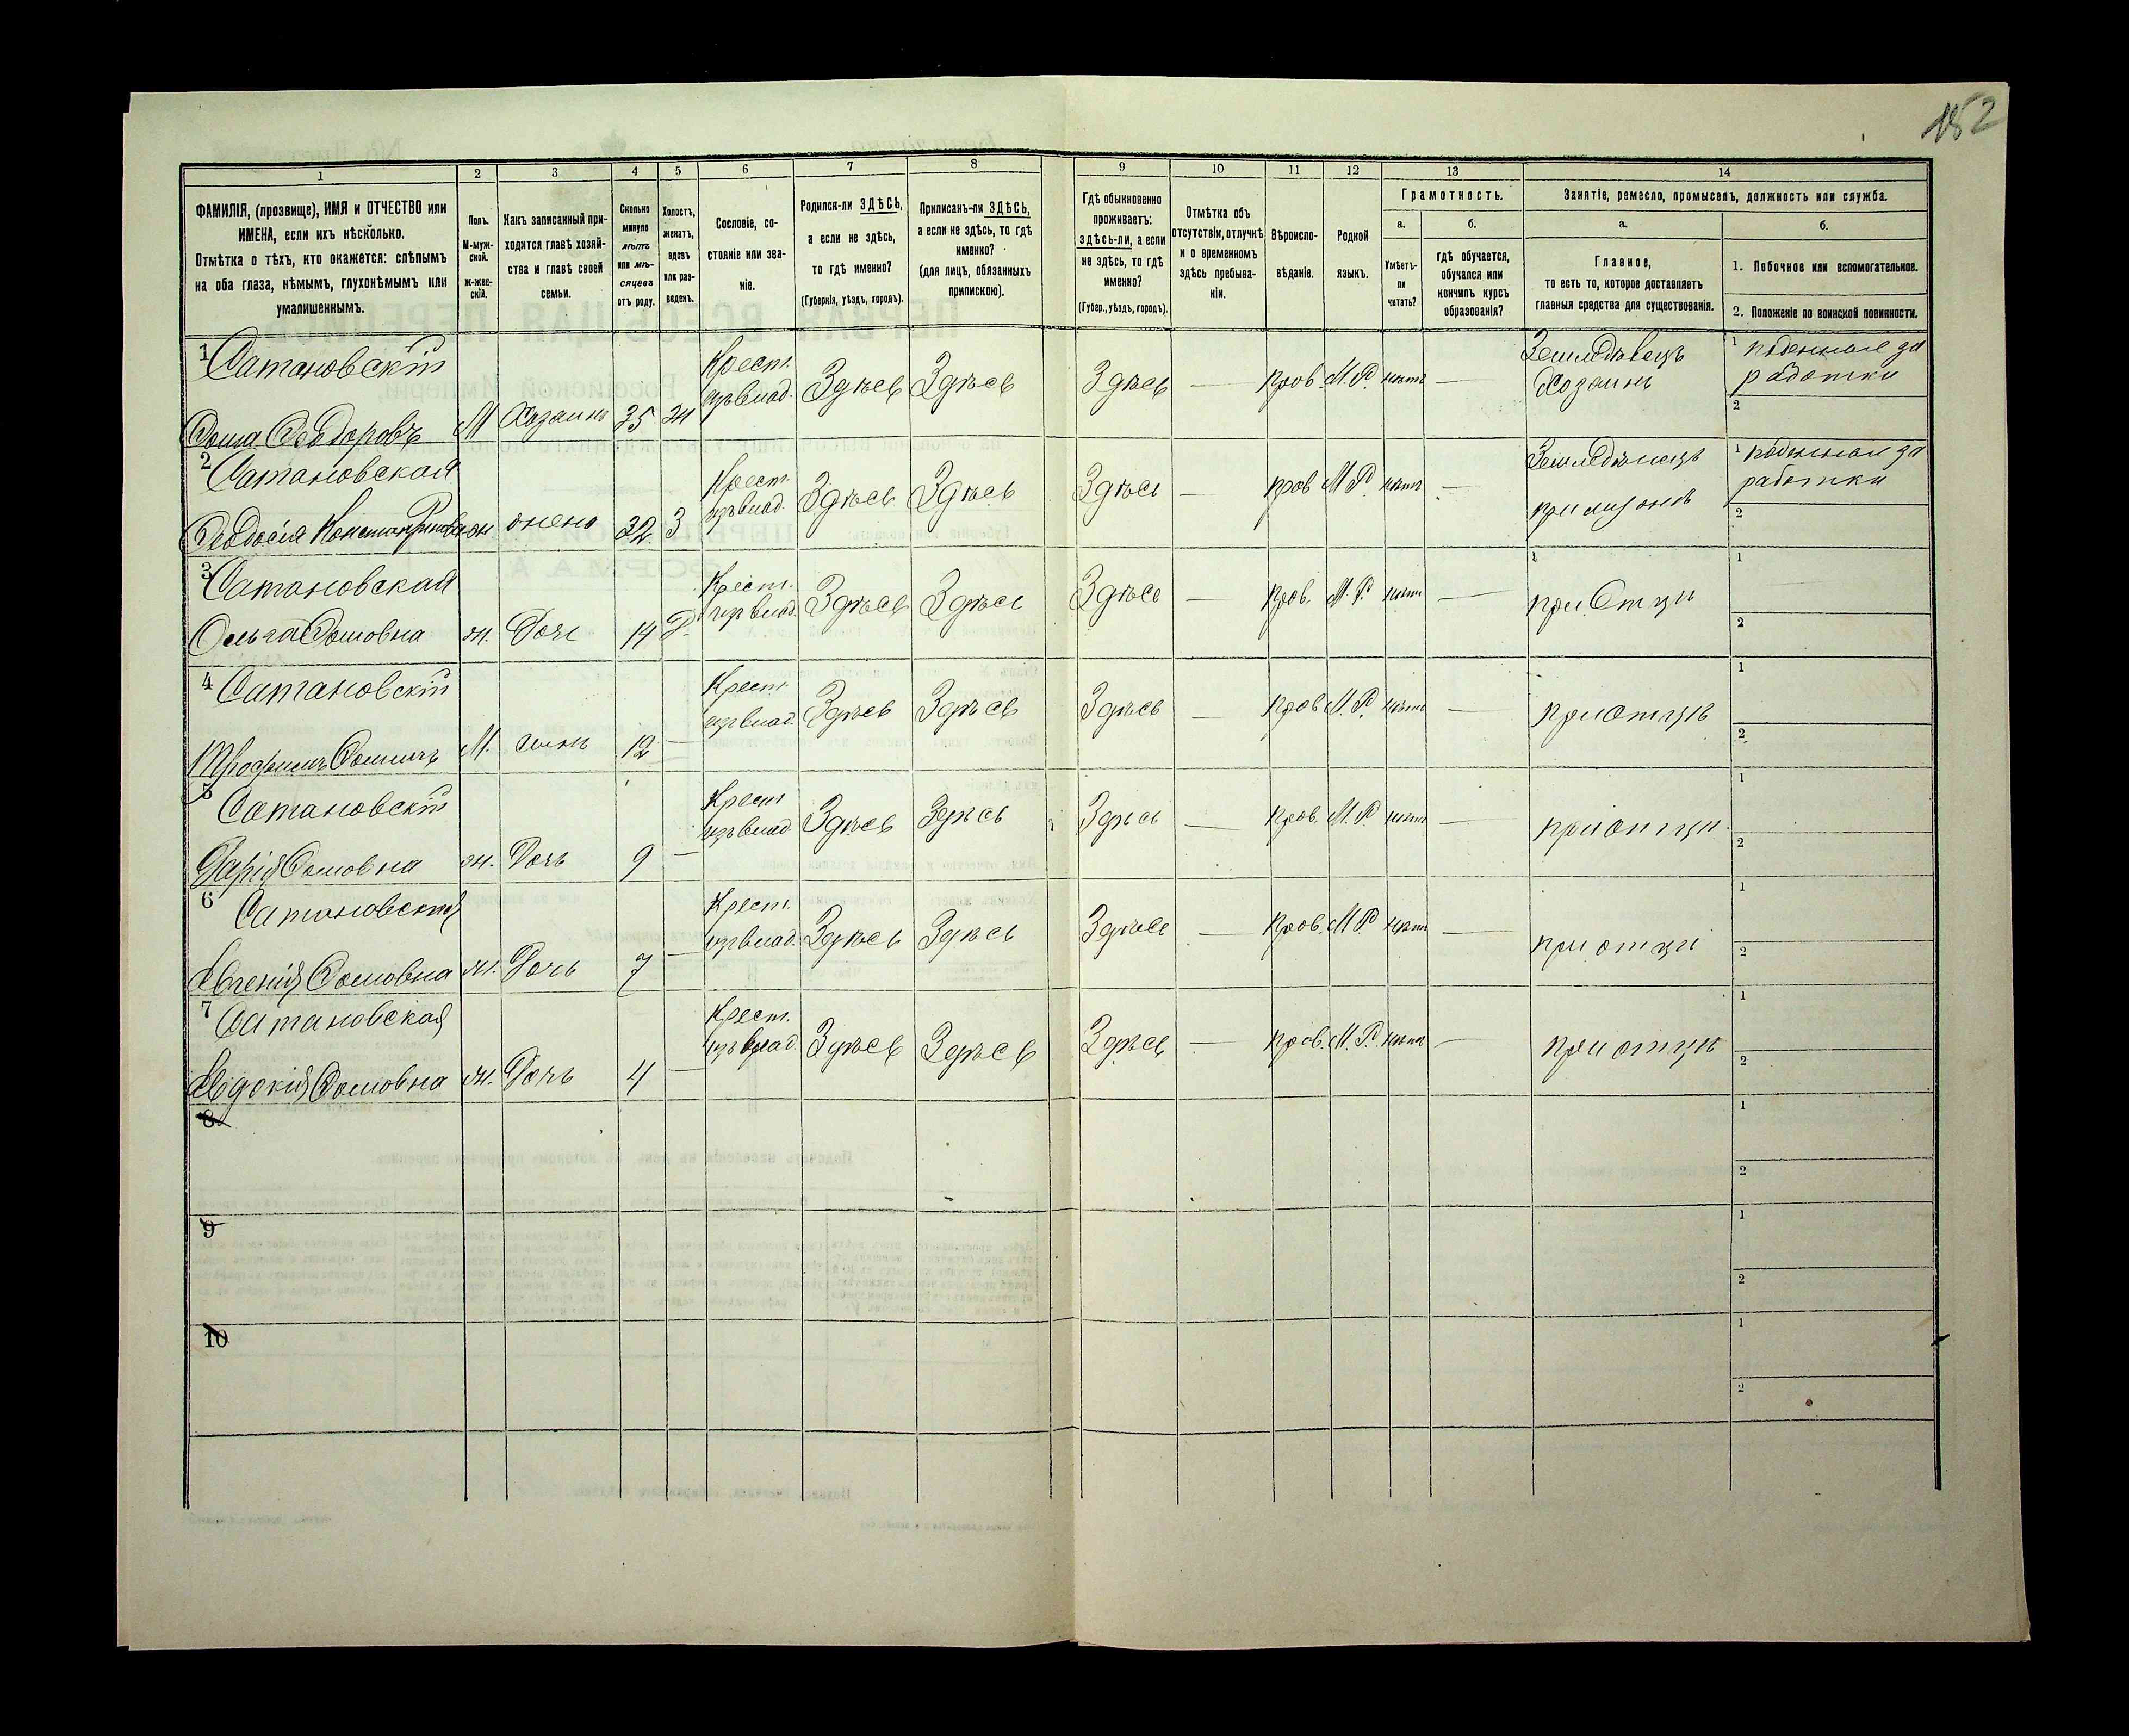 152
1
ФАМИЛІЯ, (прозвище), ИМЯ и ОТЧЕСТВО или
ИМЕНА, если ихъ нѣсколько.
Отмѣтка о тѣхъ, кто окажется: слѣпымъ
на оба глаза, нѣмымъ, глухонѣмымъ или
умалишеннымъ.
2
Полъ.
М-муж-
ской.
ж-жен-
скій.
3
Какъ записанный при-
ходится главѣ хозяй-
ства и главѣ своей
семьи.
4
Сколько
минуло
лѣтъ
или мѣ-
сяцевъ
отъ роду.
5
Холостъ,
женатъ,
вдовъ
или раз-
веденъ.
6
Сословіе, со-
стояніе или зва-
ніе.
7
Родился-ли ЗДѢСЬ,
а если не здѣсь,
то гдѣ именно?
(Губернія, уѣздъ, городъ).
8
Приписанъ-ли ЗДѢСЬ,
а если не здѣсь, то гдѣ
именно?
(для лицъ, обязанныхъ
припискою).
9
Гдѣ обыкновенно
проживаетъ:
здѣсь-ли, а если
не здѣсь, то гдѣ
именно?
(Губер., уѣздъ, городъ).
10
Отмѣтка объ
отсутствіи, отлучкѣ
и о временномъ
здѣсь пребыва-
ніи.
11
Вѣроиспо-
вѣданіе.
12
Родной
языкъ.
13
Грамотность.
а.
Умѣетъ-
ли
читать?
б.
гдѣ обучается,
обучался или
кончилъ курсъ
образованія?
14
Занятіе, ремесло, промыселъ, должность или служба.
а.
Главное,
то есть то, которое доставляетъ
главныя средства для существованія.
б.
1. Побочное или вспомогательное.
2. Положеніе по воинской повинности.
1 Сатановскій
Фома Феодоровъ М Хозаинъ 35 ж
Крест.
изъ влад. Здѣсь Здѣсь Здѣсь — прав. М.Р. нѣтъ —
Земледѣлецъ
Хозаинъ
1 поденныя за
работки
2
2 Сатановская
Феодосія Константиновна ж жена 32 З
Крест.
изъ влад. Здѣсь Здѣсь Здѣсь — прав М.Р. нѣтъ —
Земледѣлецъ
1 поденныя за
работки
2
3 Сатановская
Ольга Фомовна ж. Дочь 14 Д.
Крест.
изъ влад. Здѣсь Здѣсь Здѣсь — прав. М.Р. нѣтъ —
при Отцѣ
1
2
4 Сатановскій
Трофимъ Фомичъ М. сынъ 12 —
Крест.
изъ влад. Здѣсь Здѣсь Здѣсь — прав М.Р. нѣтъ —
при отцѣ
1
2
5 Сатановскій
Дарія Фомовна ж. Дочь 9 —
Крест
изъ влад Здѣсь Здѣсь Здѣсь — прав. М.Р. нѣтъ —
при отцѣ
1
2
6 Сатановская
Евгенія Фомовна ж. Дочь 7 —
Крест.
изъ влад. Здѣсь Здѣсь Здѣсь — прав. М.Р. нѣтъ —
при отцѣ
1
2
7 Сатановская
Евдокія Фомовна ж. Дочь 4 —
Крест.
изъ влад. Здѣсь Здѣсь Здѣсь — прав. М.Р. нѣтъ —
при отцѣ
1
2
8
1
2
9
1
2
10
1
2